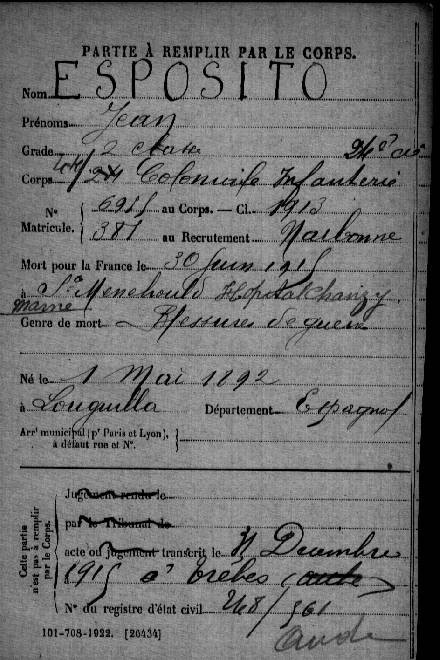 PARTIE À REMPLIR PAR LE CORPS.
Nom ESPOSITO
Prénoms Jean
Grade 2
Corps 24 Coloniale Infanterie
N° Matricule. { 6915 au Corps. — Cl. 1913
381 au Recrutement Narbonne
Mort pour la France le 30 Juin 1915
à Ste Menehould Hopital Chanzy
Marne
Genre de mort Blessures de guerre
Né le 1 Mai 1892
à Département Espagnol
Arrt municipal (pr Paris et Lyon), à défaut rue et N°. }
Cette partie n'est pas à remplir par le Corps.
Jugement rendu le
par le Tribunal de
acte ou jugement transcrit le 11 Decembre
1915 à Trèbes (aude)
N° du registre d'état civil 268/361
Aude
101-708-1922. [26434]